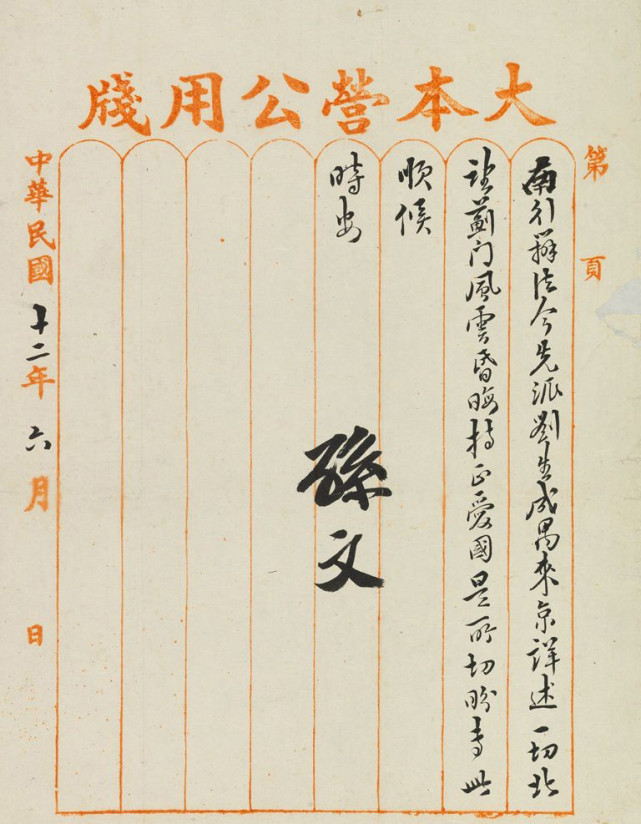 大本營公用牋
第 頁
南行辦法今先派劉生成禺來京詳述一切北
望薊门風雲昏晦持正愛國是所切盼專此
順候
時安
孫文
中華民國十二年六月 日